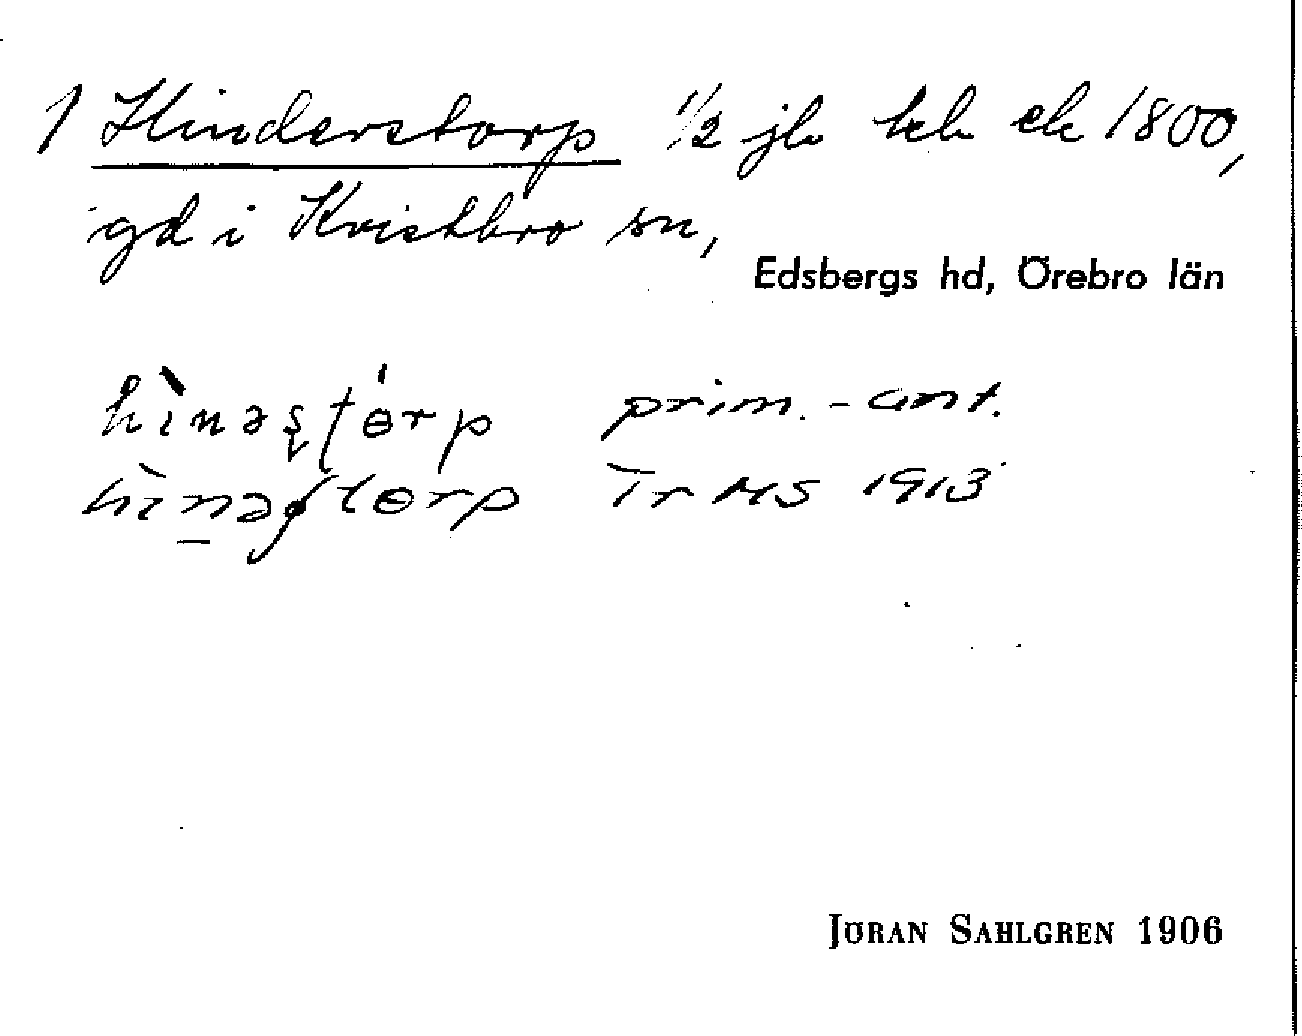 1 Hinderstorp 1/2 jb kb ek 1800,
gd i Kvistbro sn,
Edsbergs hd, Örebro län
hìnəʂʈɵ́rp prim.-ant.
hìnəʃtɵrp Tr MS 1913
JÖRAN SAHLGREN 1906